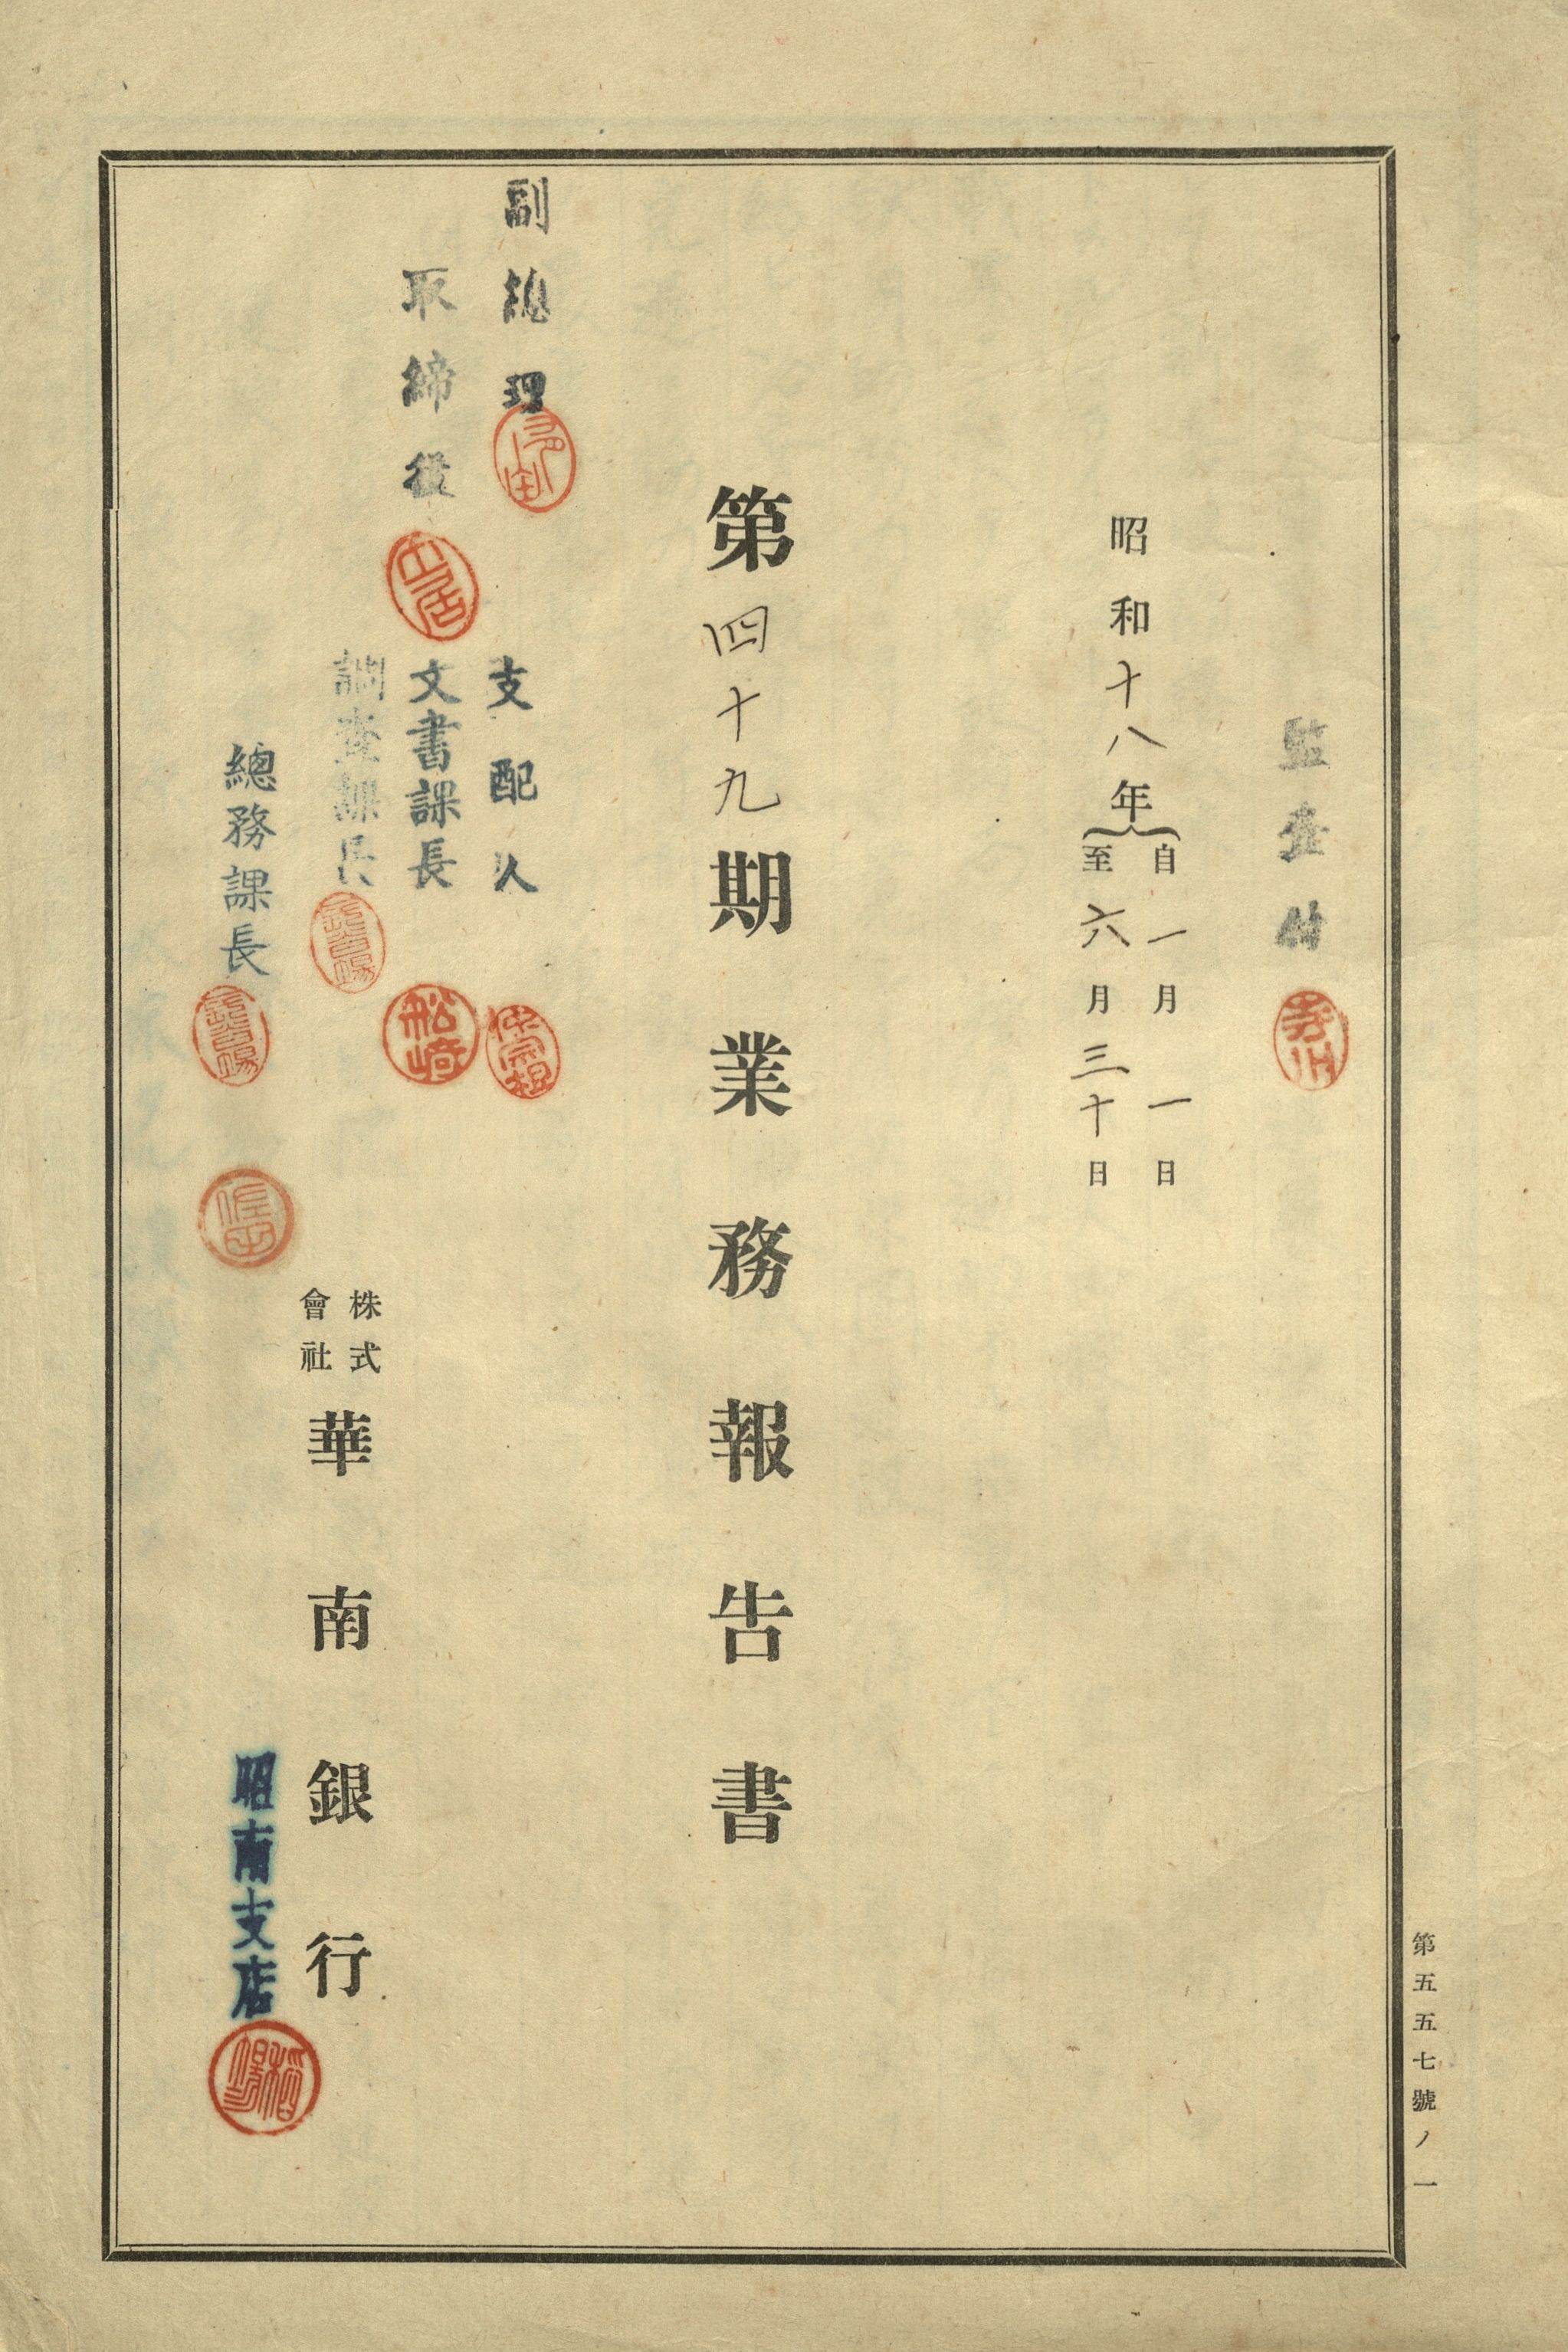 監査付
昭和十八年
自一月一日
至六月三十日
第四十九期業務報告書
副總理
取締役
支配人
文書課長
船崎
調査課長
總務課長
株式
會社
華南銀行
昭南支店
第五五七號ノ一